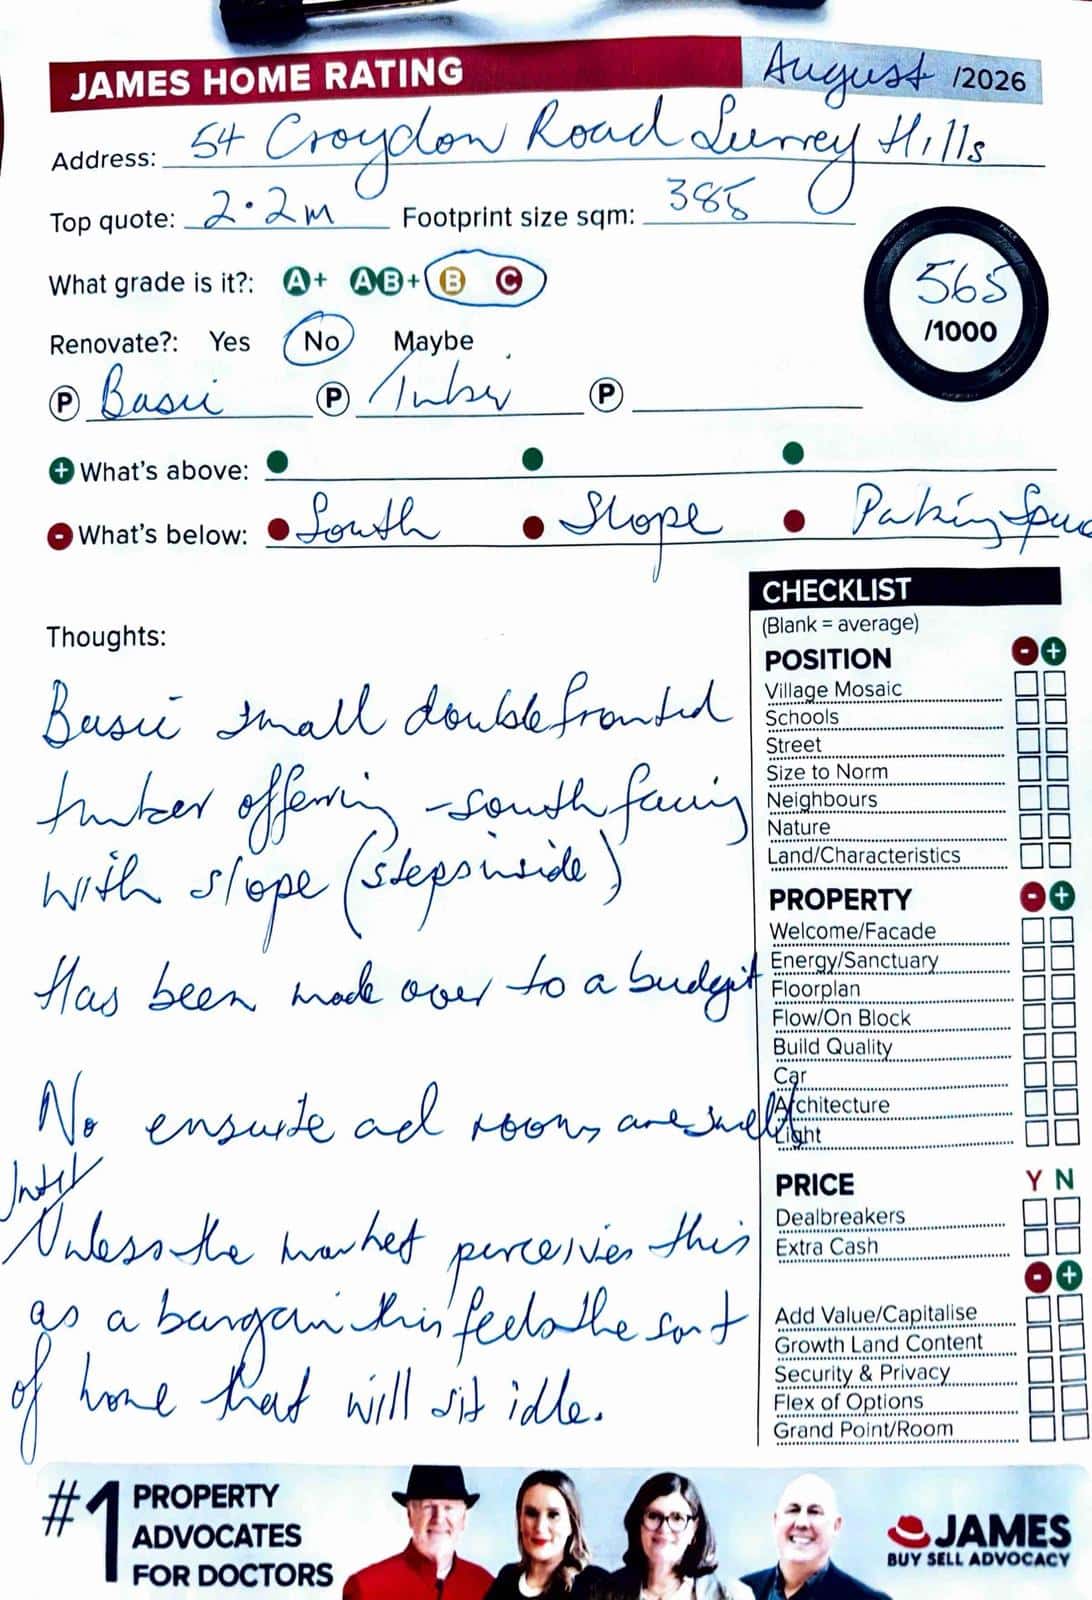 JAMES HOME RATING August /2026
Address: 54 Croydon Road Surrey Hills
Top quote: 2.2m Footprint size sqm: 385
565
/1000
What grade is it?: A+ AB+ B C
Renovate?: Yes No Maybe
P Basic P Timber P
+ What's above:
- What's below: South Slope Parking Space
Thoughts:
Basic small double fronted
timber offering - south facing
with slope (steps inside)
Has been made over to a budget
No ensuite and rooms are small
Unless the market perceives this
as a bargain this feels the sort
of home that will sit idle.
CHECKLIST
(Blank = average)
POSITION - +
Village Mosaic
Schools
Street
Size to Norm
Neighbours
Nature
Land/Characteristics
PROPERTY - +
Welcome/Facade
Energy/Sanctuary
Floorplan
Flow/On Block
Build Quality
Car
Architecture
Light
PRICE Y N
Dealbreakers
Extra Cash
- +
Add Value/Capitalise
Growth Land Content
Security & Privacy
Flex of Options
Grand Point/Room
#1 PROPERTY
ADVOCATES
FOR DOCTORS
JAMES
BUY SELL ADVOCACY